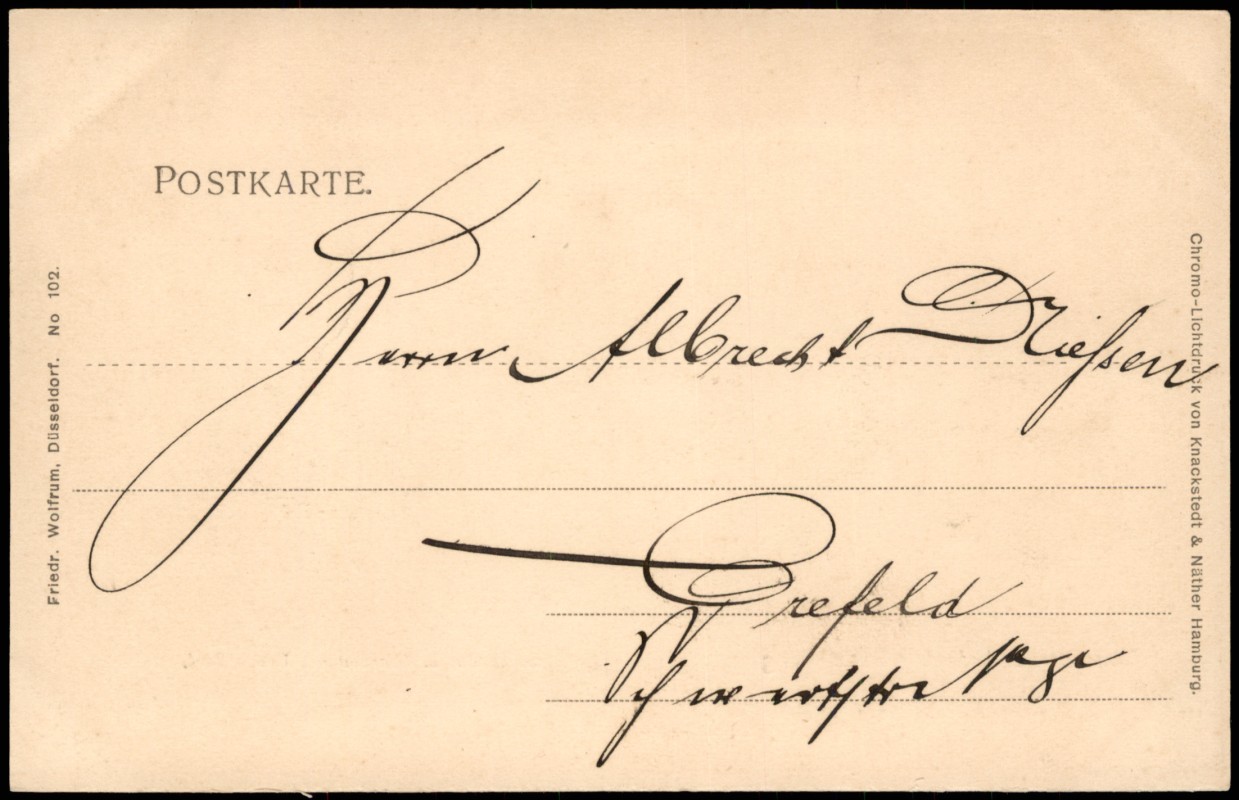 POSTKARTE.
Herrn Albrecht Nießen
Crefeld
Friedr. Wolfrum, Düsseldorf. No 102.
Chromo-Lichtdruck von Knackstedt & Näther Hamburg.